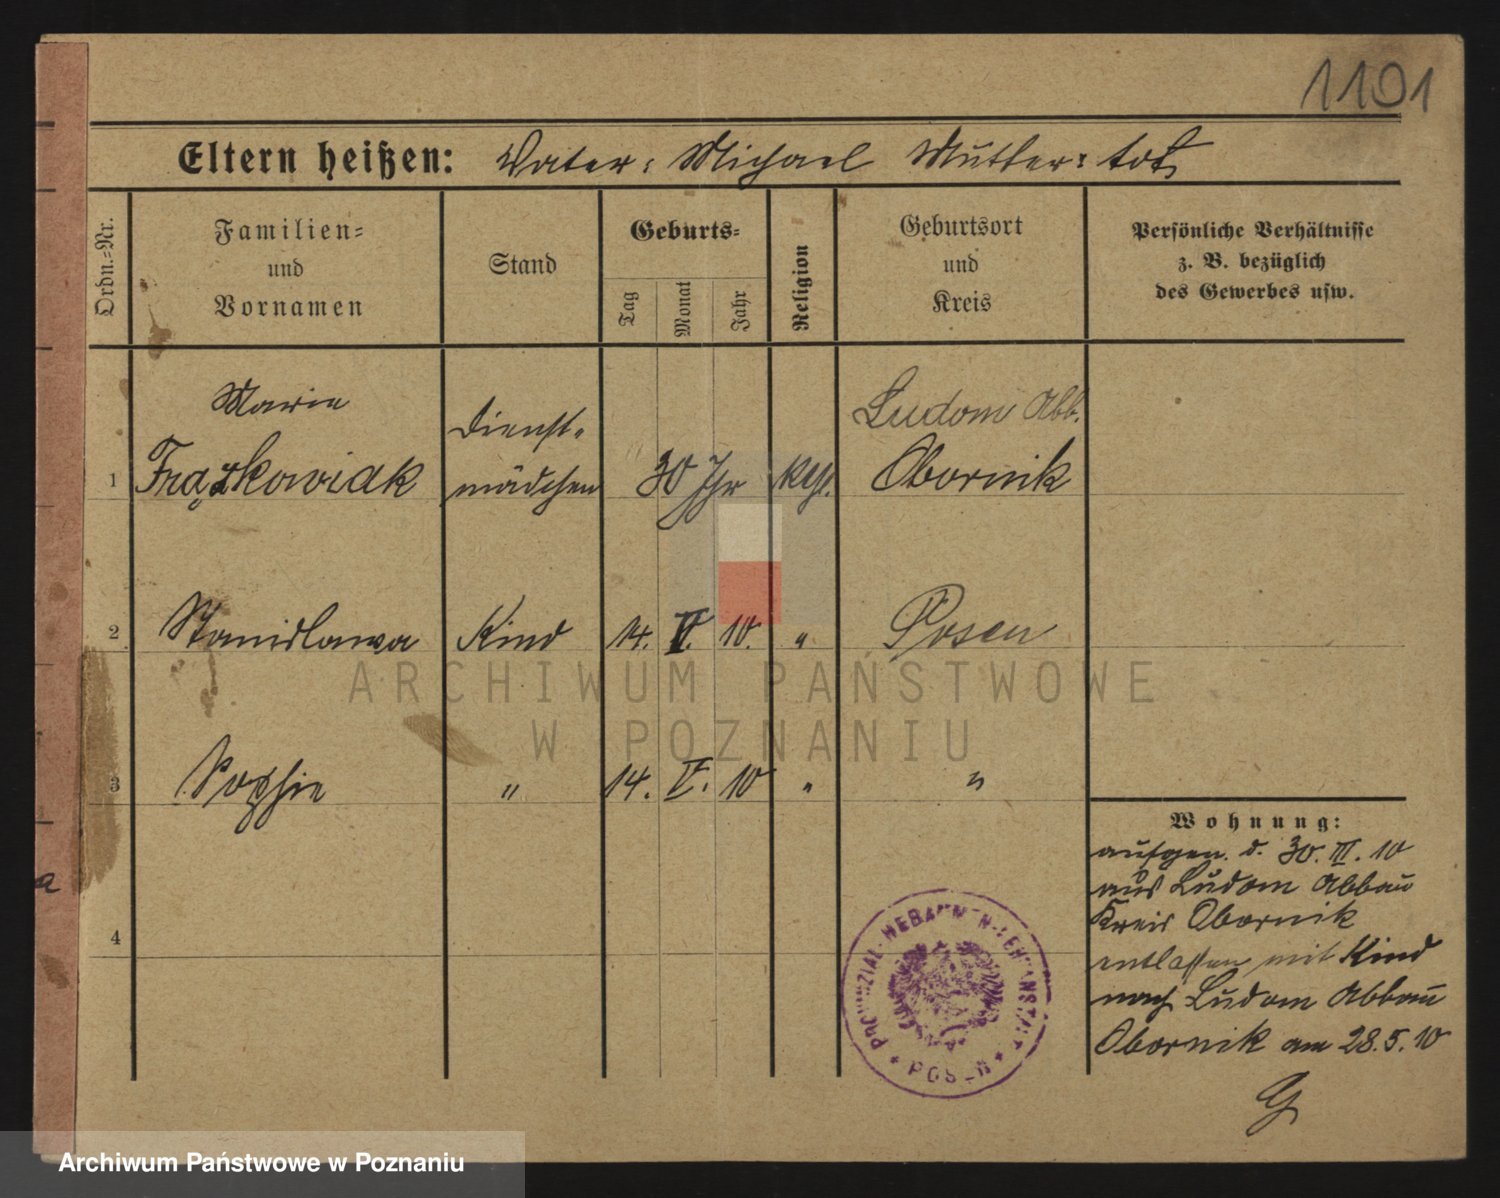 1101
Eltern heißen: Vater: Michael Mutter: tot
Ordn.=Nr.
Familien=
und
Vornamen
Stand
Geburts=
Tag
Monat
Jahr
Religion
Geburtsort
und
Kreis
Persönliche Verhältnisse
z. B. bezüglich
des Gewerbes usw.
Marie
Dienst-
Ludom Abb.
1 Frąckowiak mädchen 30 Jhr kath. Obornik
2 Stanislawa Kind 14. V. 10. " Posen
3 Sophie " 14. V. 10 " "
4
Wohnung:
aufgen. d. 30. III. 10
aus Ludom Abbau
Kreis Obornik
entlassen mit Kind
nach Ludom Abbau
Obornik am 28.5.10
G
PROVINZIAL-HEBAMMEN-LEHRANSTALT
* POSEN *
a
ARCHIWUM PAŃSTWOWE
W POZNANIU
Archiwum Państwowe w Poznaniu